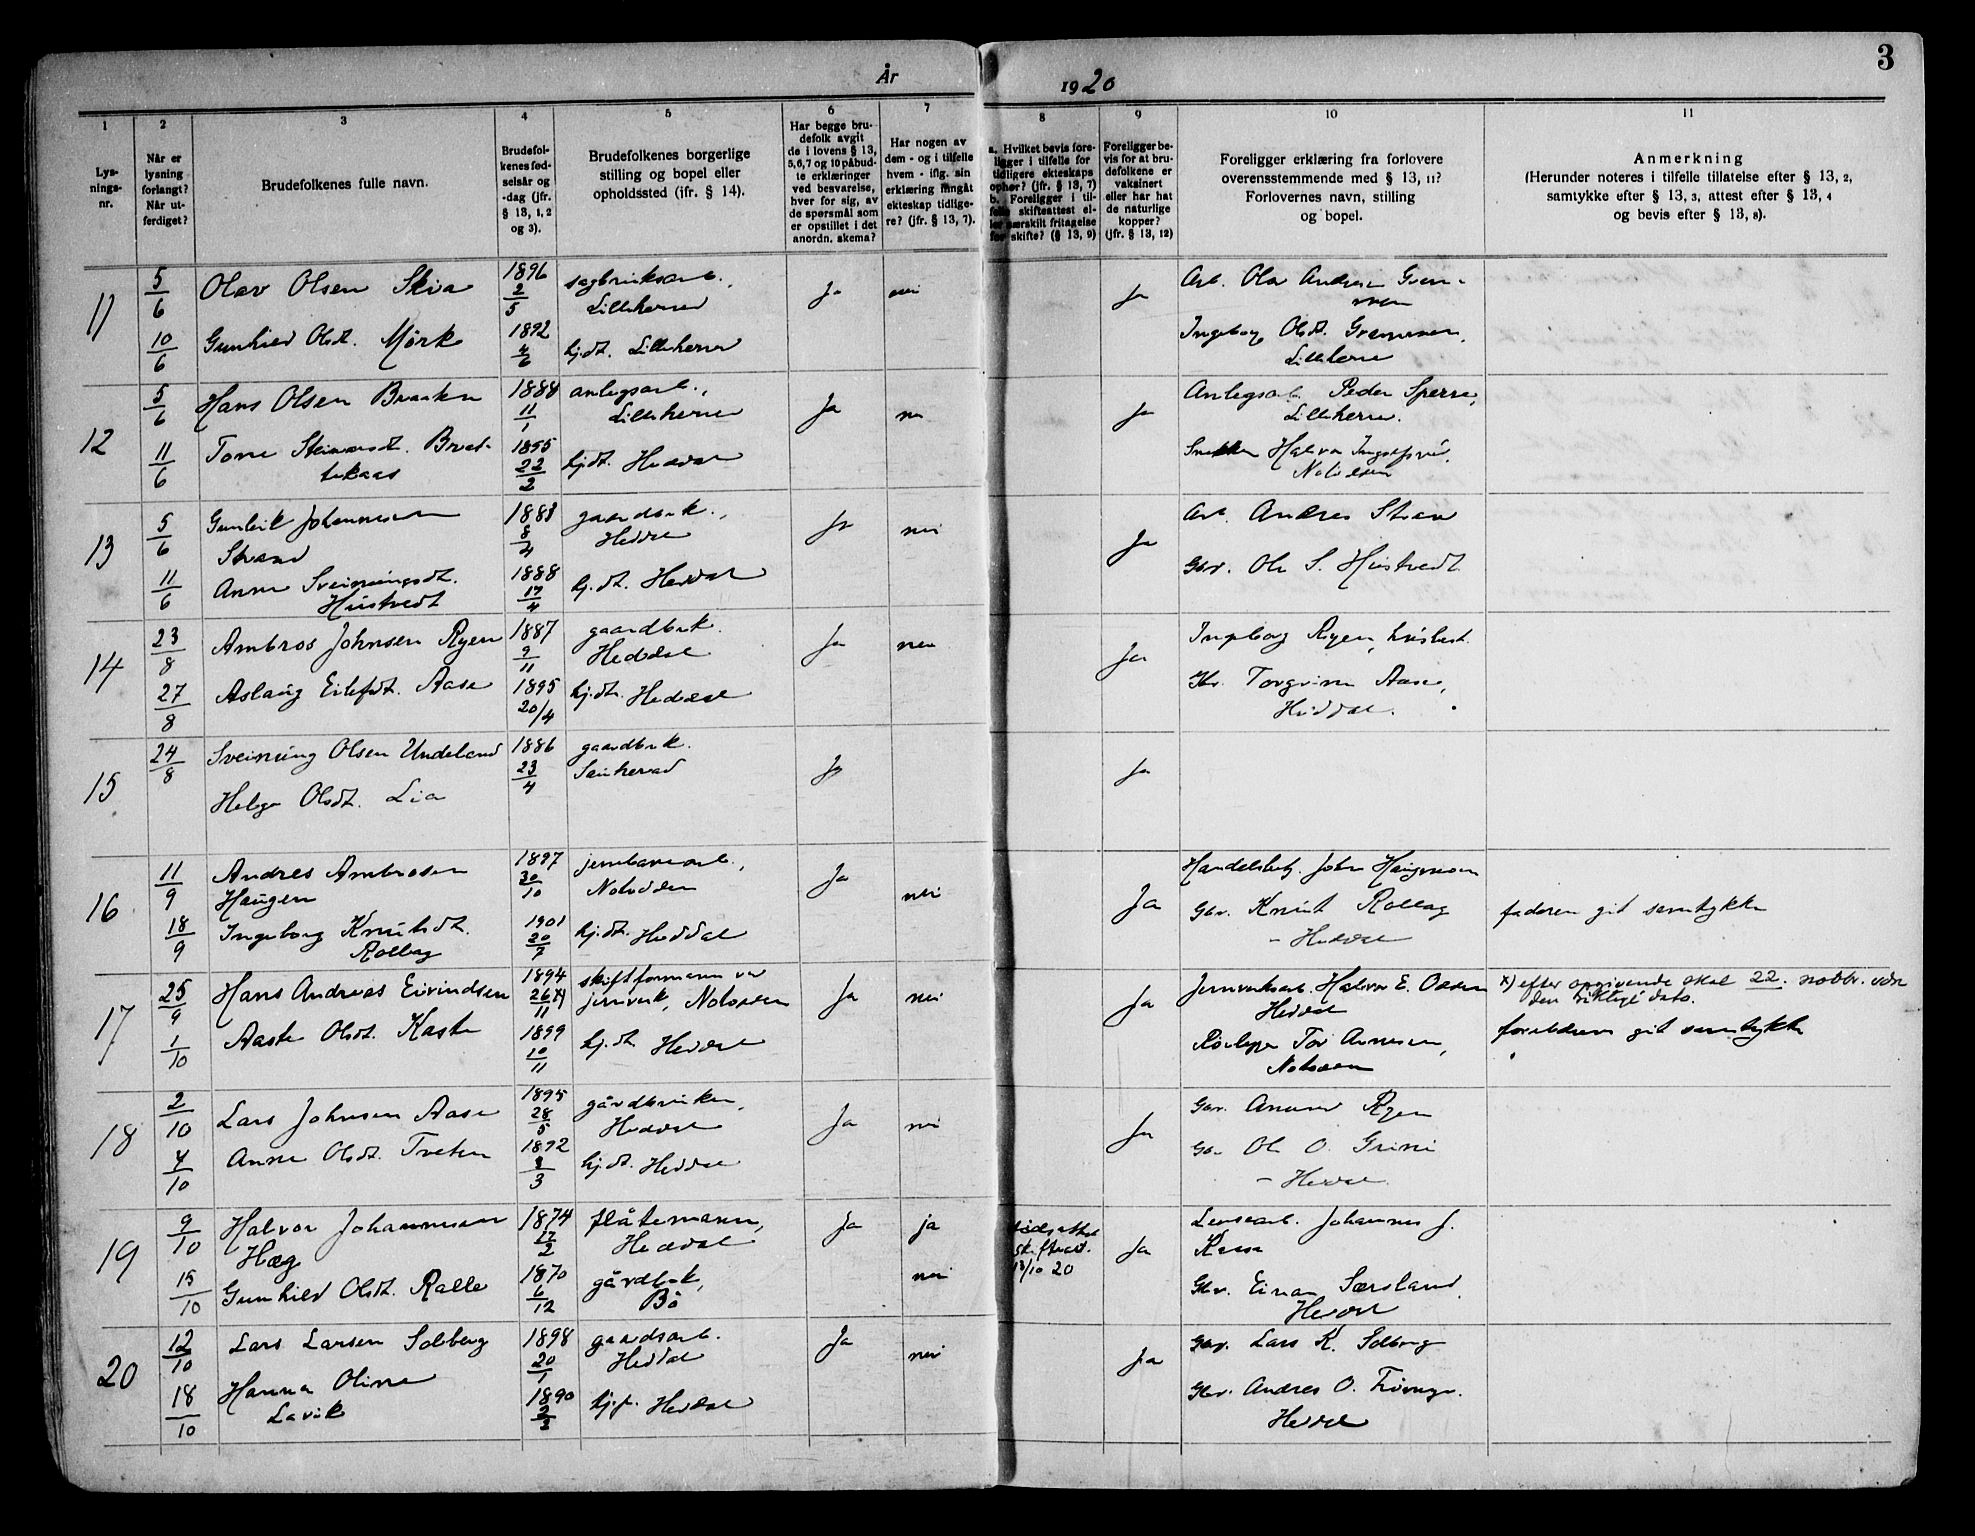 3
År 1920
1
Lys-
nings-
nr.
2
Når er
lysning
forlangt?
Når ut-
ferdiget?
3
Brudefolkenes fulle navn.
4
Brudefol-
kenes fød-
selsår og
-dag (jfr.
§ 13, 1, 2
og 3).
5
Brudefolkenes borgerlige
stilling og bopel eller
opholdssted (ifr. § 14).
6
Har begge bru-
defolk avgit
de i lovens § 13,
5, 6, 7 og 10 påbud-
te erklæringer
ved besvarelse,
hver for sig, av
de spørsmål som
er opstillet i det
anordn. skema?
7
Har nogen av
dem - og i tilfelle
hvem - iflg. sin
erklæring inngåt
ekteskap tidlige-
re? (jfr. § 13, 7).
8
a. Hvilket bevis fore-
ligger i tilfelle for
tidligere ekteskaps
ophør? (jfr. § 13, 7)
b. Foreligger i til-
felle skifteattest el-
ler særskilt fritagelse
for skifte? (§ 13, 9)
9
Foreligger be-
vis for at bru-
defolkene er
vaksinert
eller har hat
de naturlige
kopper?
(jfr. § 13, 12)
10
Foreligger erklæring fra forlovere
overensstemmende med § 13, 11?
Forlovernes navn, stilling
og bopel.
11
Anmerkning
(Herunder noteres i tilfelle tillatelse efter § 13, 2,
samtykke efter § 13, 3, attest efter § 13, 4
og bevis efter § 13, 8).
11
5/6 Olav Olsen Skia 1896 2/5 sagbruksarb., Lilleherred ja nei ja Arb. Ola Andresen
10/6 Gunhild Olsdt. Mørk 1892 4/6 hj.dt. Lilleherred Ingeborg Olsdt.
Lilleherre
12
5/6 Hans Olsen Braaten 1888 11/1 anlegsarb., Lilleherred Ja nei ja Anlegsarb. Peder Sperre,
Lilleherre.
11/6 Tone 1895 22/2 hj.dt. Heddal Halvor
Notodden
13
5/6 Gunleik Johannesen
Strand 1888 8/4 gaardbruk., Heddal Ja nei Ja Arb. Andres Strand
11/6 Anne Sveinungsdt.
Hustvedt 1888 17/4 hj.dt. Heddal Gbr. Ole S. Hustvedt
14
23/8 Ambros Johnsen Ryen 1887 9/11 gaardbruk. Heddal Ja nei Ja Ingeborg Ryen,
27/8 Aslaug Eilefsdt. Aase 1895 20/4 hj.dt. Heddal Gbr. Torgrim Aase,
Heddal.
15
24/8 Sveinung Olsen Undeland 1886 23/4 gaardbruk. Sauherad Ja ja
Helge Olsdt. Lia
16
11/9 Andres Ambrosen
Haugen 1897 30/10 jernbanearb., Notodden Ja nei Ja Handelsbetj. John Haugmoen
18/9 Ingeborg Knutsdt.
Rollag 1901 20/7 hj.dt. Heddal Gbr. Knut Rollag faderen git samtykke
- Heddal
17
25/9 Hans Andreas Eivindsen 1894 26/11 x) skiftformann ved
jernverk, Notodden Ja nei Ja Jernverksarb. Halvor E. Olsen
Heddal x) efter opgivende skal 22. novbr. være
den riktige dato.
1/10 Aaste Olsdt. Kaste 1899 10/11 hj.dt. Heddal Tor Arnesen,
Notodden foreldrene git samtykke
18
2/10 Lars Johnsen Aase 1895 28/5 gårdbruker, Heddal Ja nei Ja Gbr. Ryen
4/10 Anne Olsdt. Tveten 1892 /3 hj.dt. Heddal Gbr. Ole O. Grini
- Heddal.
19
9/10 Halvor Johannesen
Hæg 1874 17/2 flåtemann, Heddal Ja ja skifteatt.
13/10 20 Ja Johannes J.
15/10 Gunhild Olsdt. Kalle 1870 6/12 gårdbruk, Bö nei Gbr. Einar Særsland,
Heddal
20
12/10 Lars Larsen Solberg 1898 20/1 gaardsarb. Heddal Ja nei Ja Gbr. Lars K. Solberg
18/10 Hanna Oline
Lavik 1890 hj.p. Heddal Gbr. Andres O.
Heddal